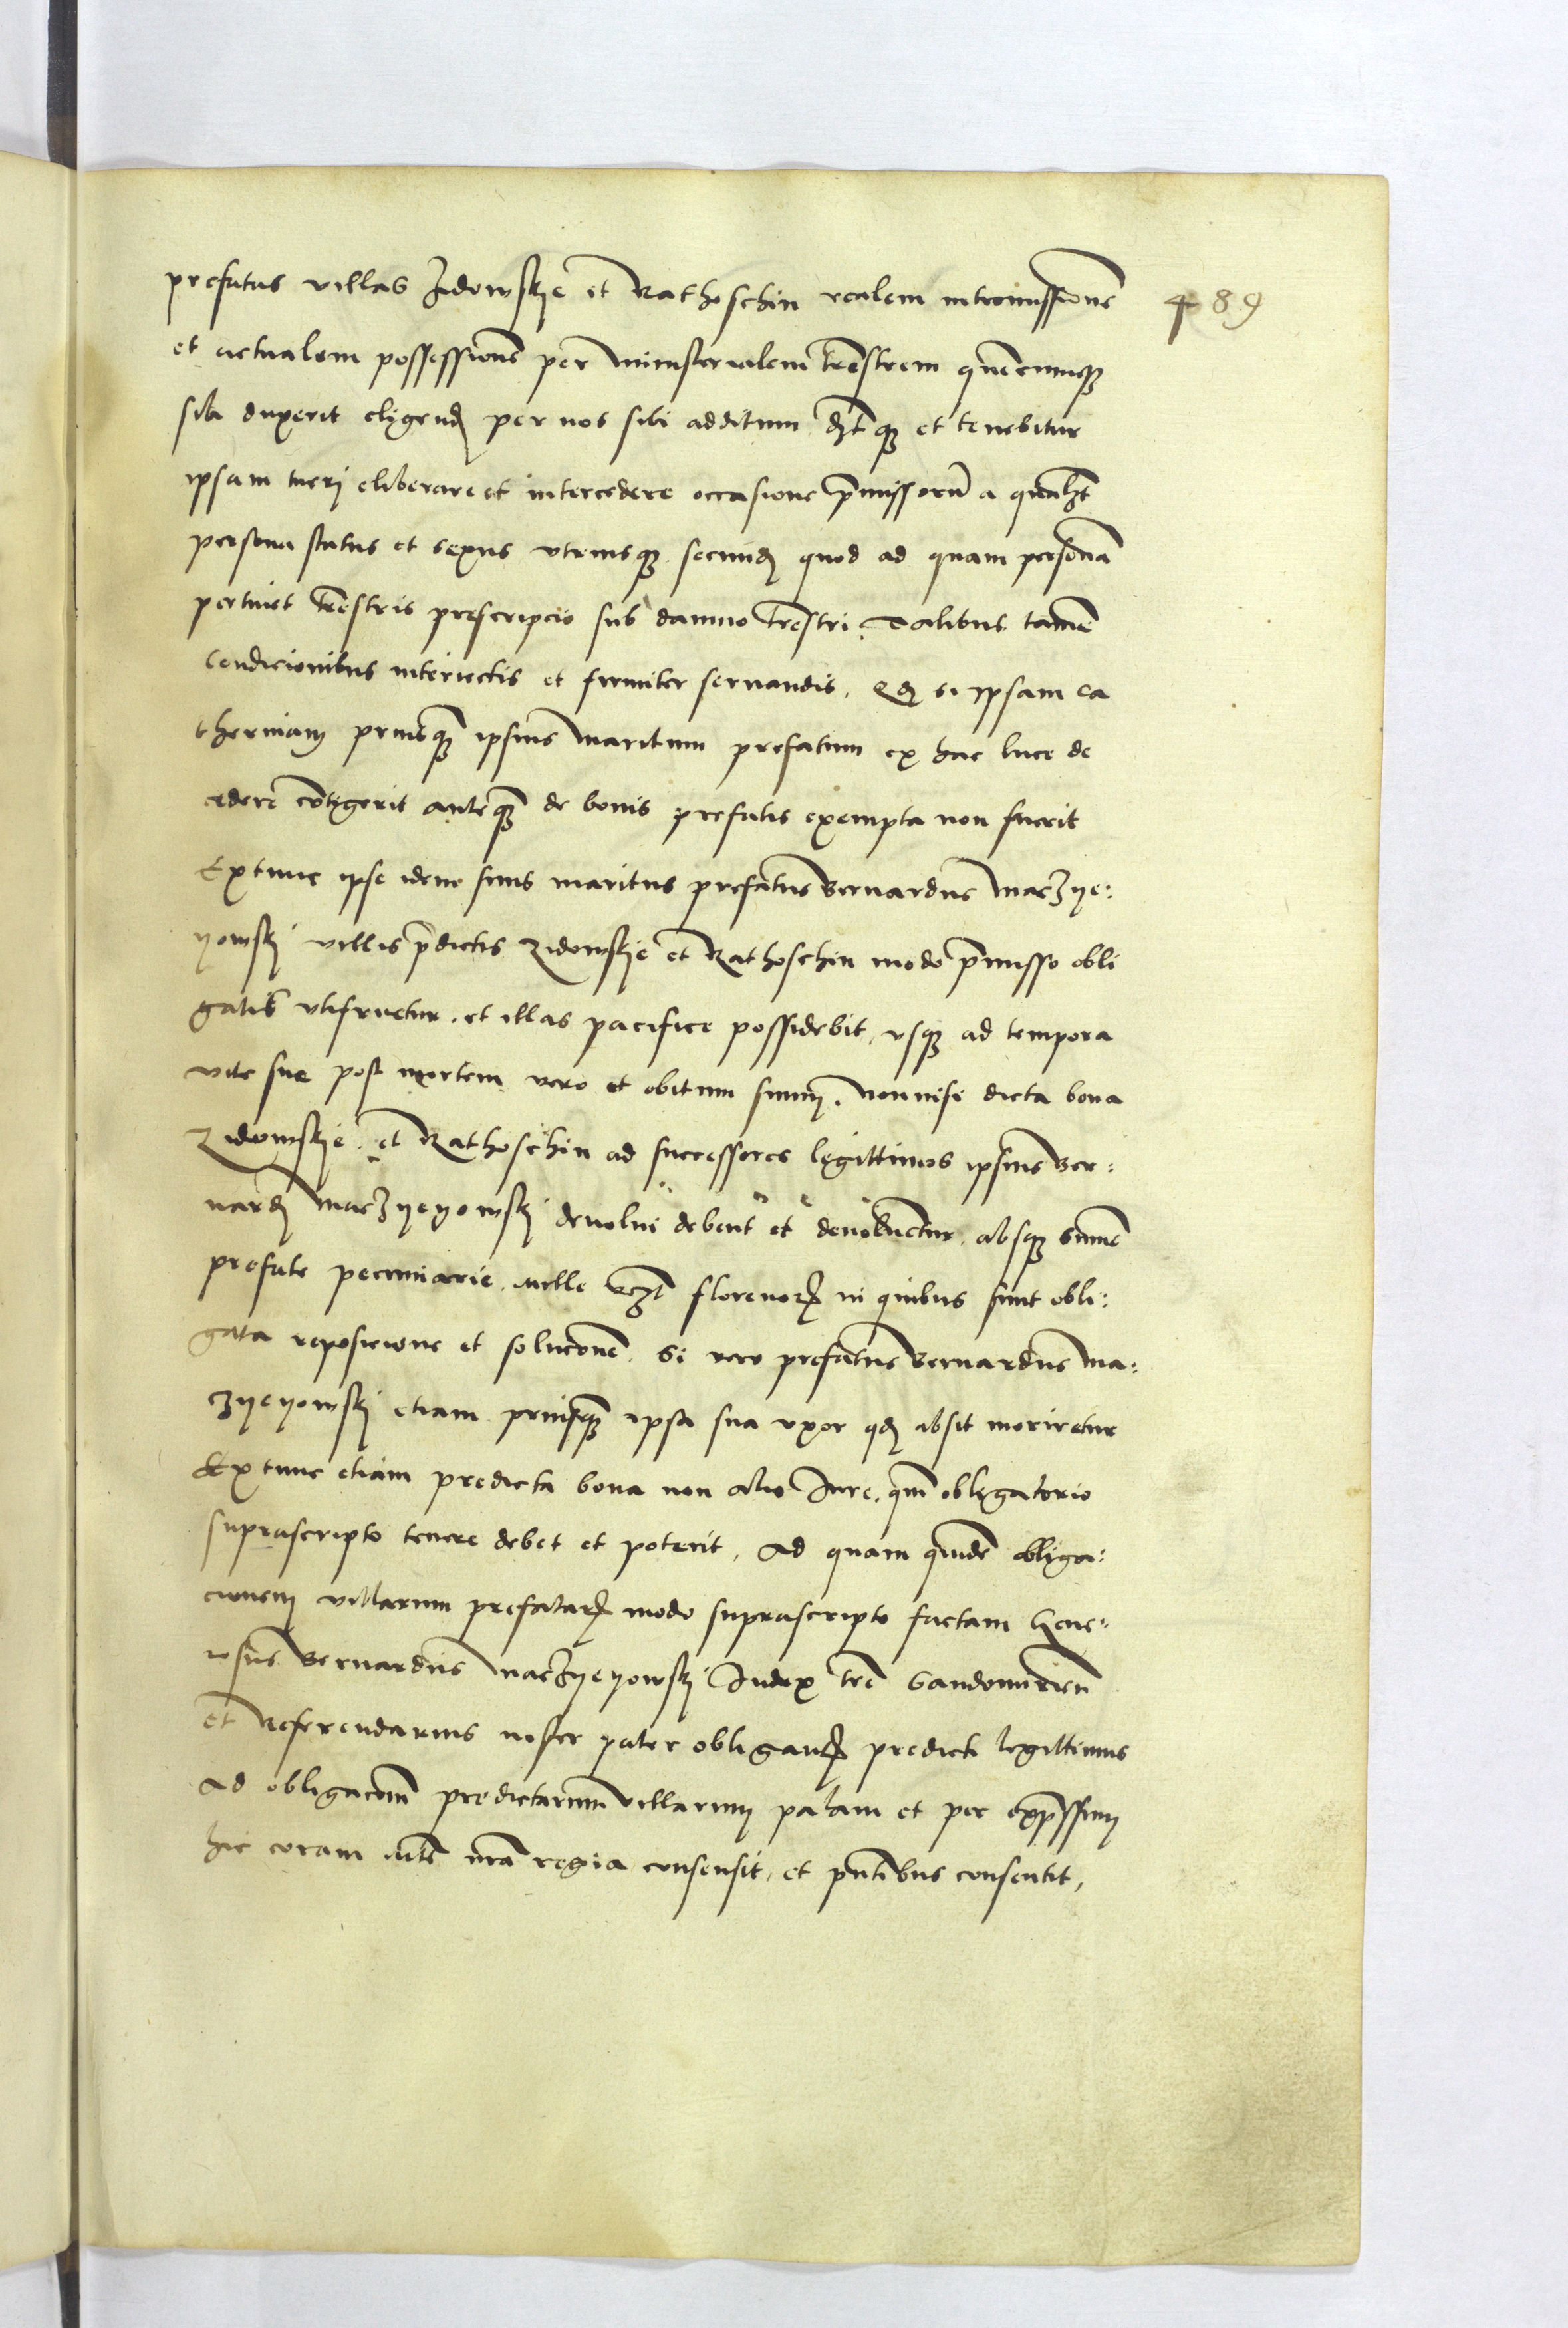 prefatas villas Zidowskye et Rathoschin realem intromissionē 489
et actualem possessionē per ministerialem trēstrem quēcumqȝ
sibi duxerit eligend per nos sibi additum dȝtqȝ et tenebitur
ipsam tueri eliberare et intercedere occasione p̄missorū a qualȝt
persona status et sexus vtriusqȝ secund quod ad quam personā
pertinet trēstris prescripcio sub damno trēstri. Talibus tamē
condicionibus interiectis et firmiter seruandis, Qd si ipsam Ca
therinam priusqȝ ipsius maritum prefatum ex hac luce de
cedere cōtigerit anteqȝ de bonis prefatis exempta non fuerit
Extunc ipse idem suus maritus prefatus Bernardus Maczye:
yowskj villis p̄dictis Zidowskye et Rathoschin modo p̄misso obli
gatis vtifruetur, et illas pacifice possidebit, vsqȝ ad tempora
vite sue post mortem vero et obitum suum, nonnisi dicta bona
Zidowskye et Rathoschin ad successores legittimos ipsius Ber:
nardj Maczyeyowskj deuolui debent et deuoluentur, absqȝ summe
prefate pecuniarie, mille vcȝt florenorꝝ in quibus sunt obli:
gata reposicione et solucōne, Si vero prefatus Bernardus Ma:
czyeyowskj etiam priusqȝ ipsa sua vxor qd absit moriretur
Extunc etiam predicta bona non alio Iure, qm obligatorio
suprascripto tenere debet et poterit, Ad quam quidē obliga:
cionem villarum prefatarꝝ modo suprascripto factam Gene:
rosus Bernardus Maczyeyowskj Iudex trē Sandomirieñ
et Referendarius noster pater obligantꝭ predicti legittimus
Ad obligacōm predictarum villarum palam et per exp̄ssum
hic coram Mte nr̄a regia consensit, et pn̄tibus consentit,